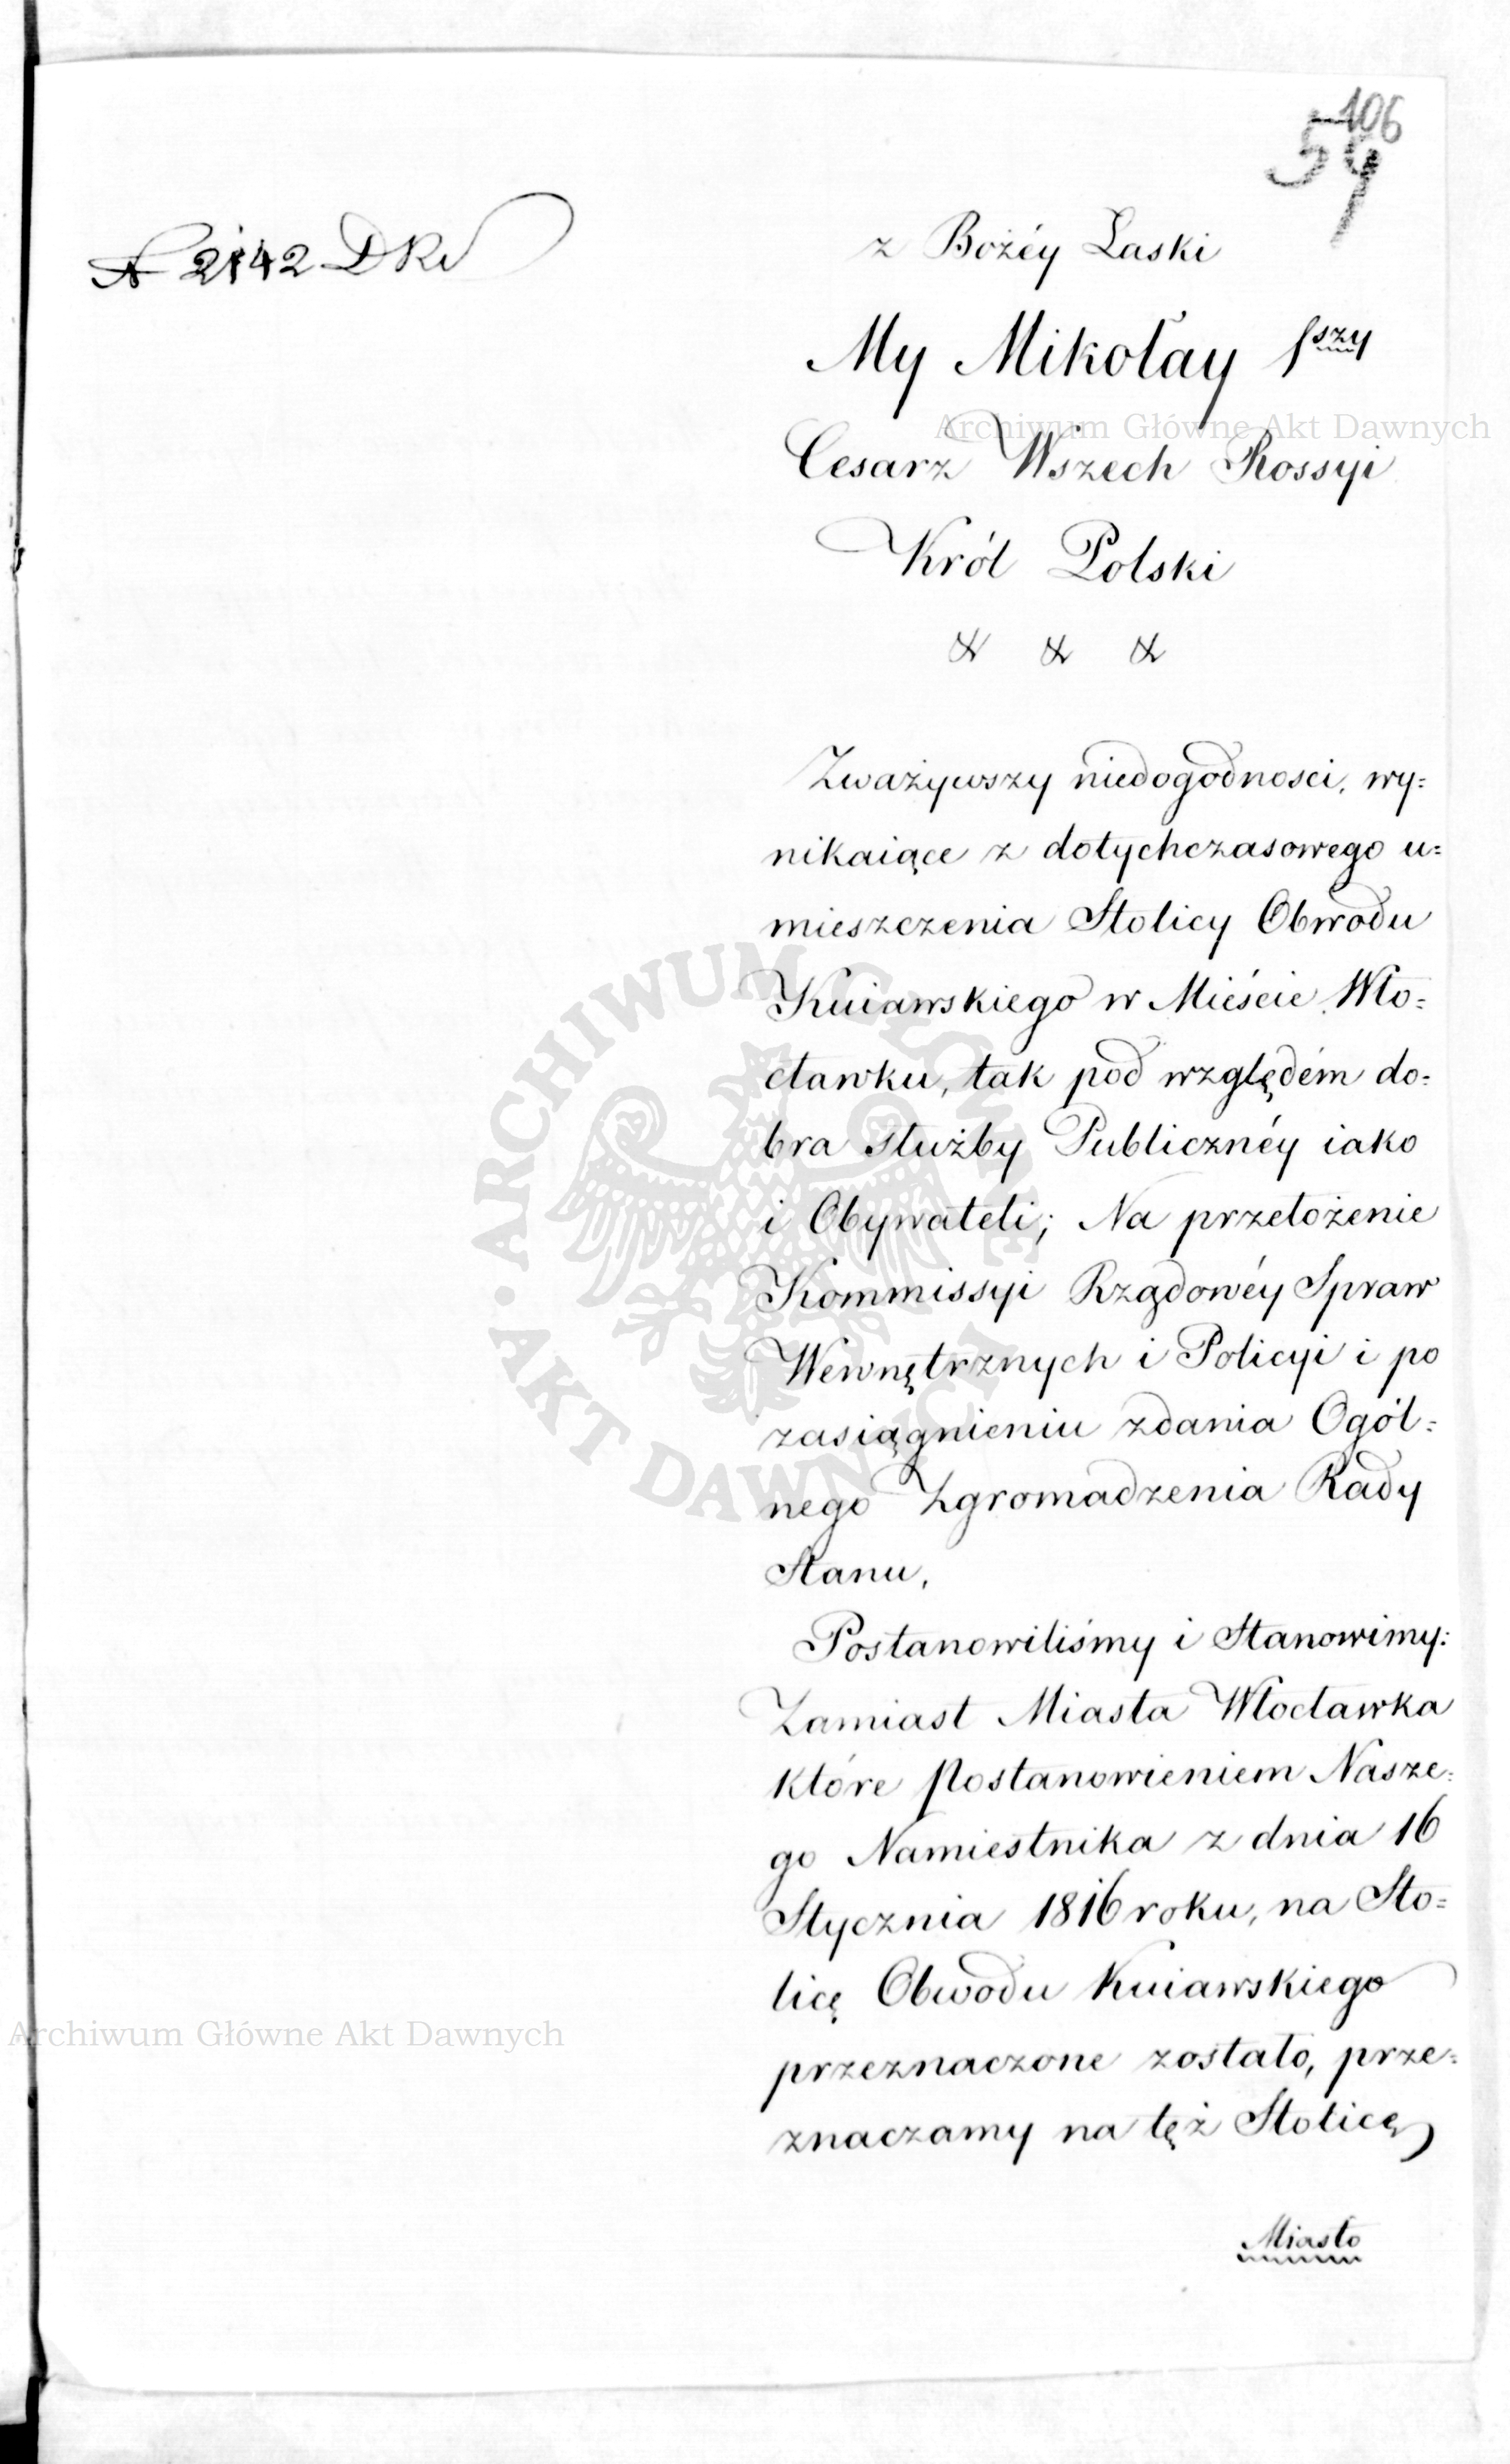 106
59
N 2142 DKr
z Bożéy Łaski
My Mikołay Iszy
Cesarz Wszech Rossyi
Król Polski
& & &
Zważywszy niedogodnosci, wy=
nikaiące z dotychczasowego u=
mieszczenia Stolicy Obwodu
Kuiawskiego w Mieście Wło=
cławku, tak pod względém do=
bra służby Publicznéy iako
i Obywateli; Na przełożenie
Kommissyi Rządowéy Spraw
Wewnętrznych i Policyi i po
zasiągnieniu zdania Ogól=
nego Zgromadzenia Rady
Stanu,
Postanowiliśmy i Stanowimy:
Zamiast Miasta Włocławka
które Postanowieniem Nasze=
go Namiestnika z dnia 16
Stycznia 1816 roku, na Sto=
licę Obwodu Kuiawskiego
przeznaczone zostało, prze=
znaczamy na tęż Stolicę
Miasto
Archiwum Główne Akt Dawnych
ARCHIWUM GŁÓWNE AKT DAWNYCH
Archiwum Główne Akt Dawnych